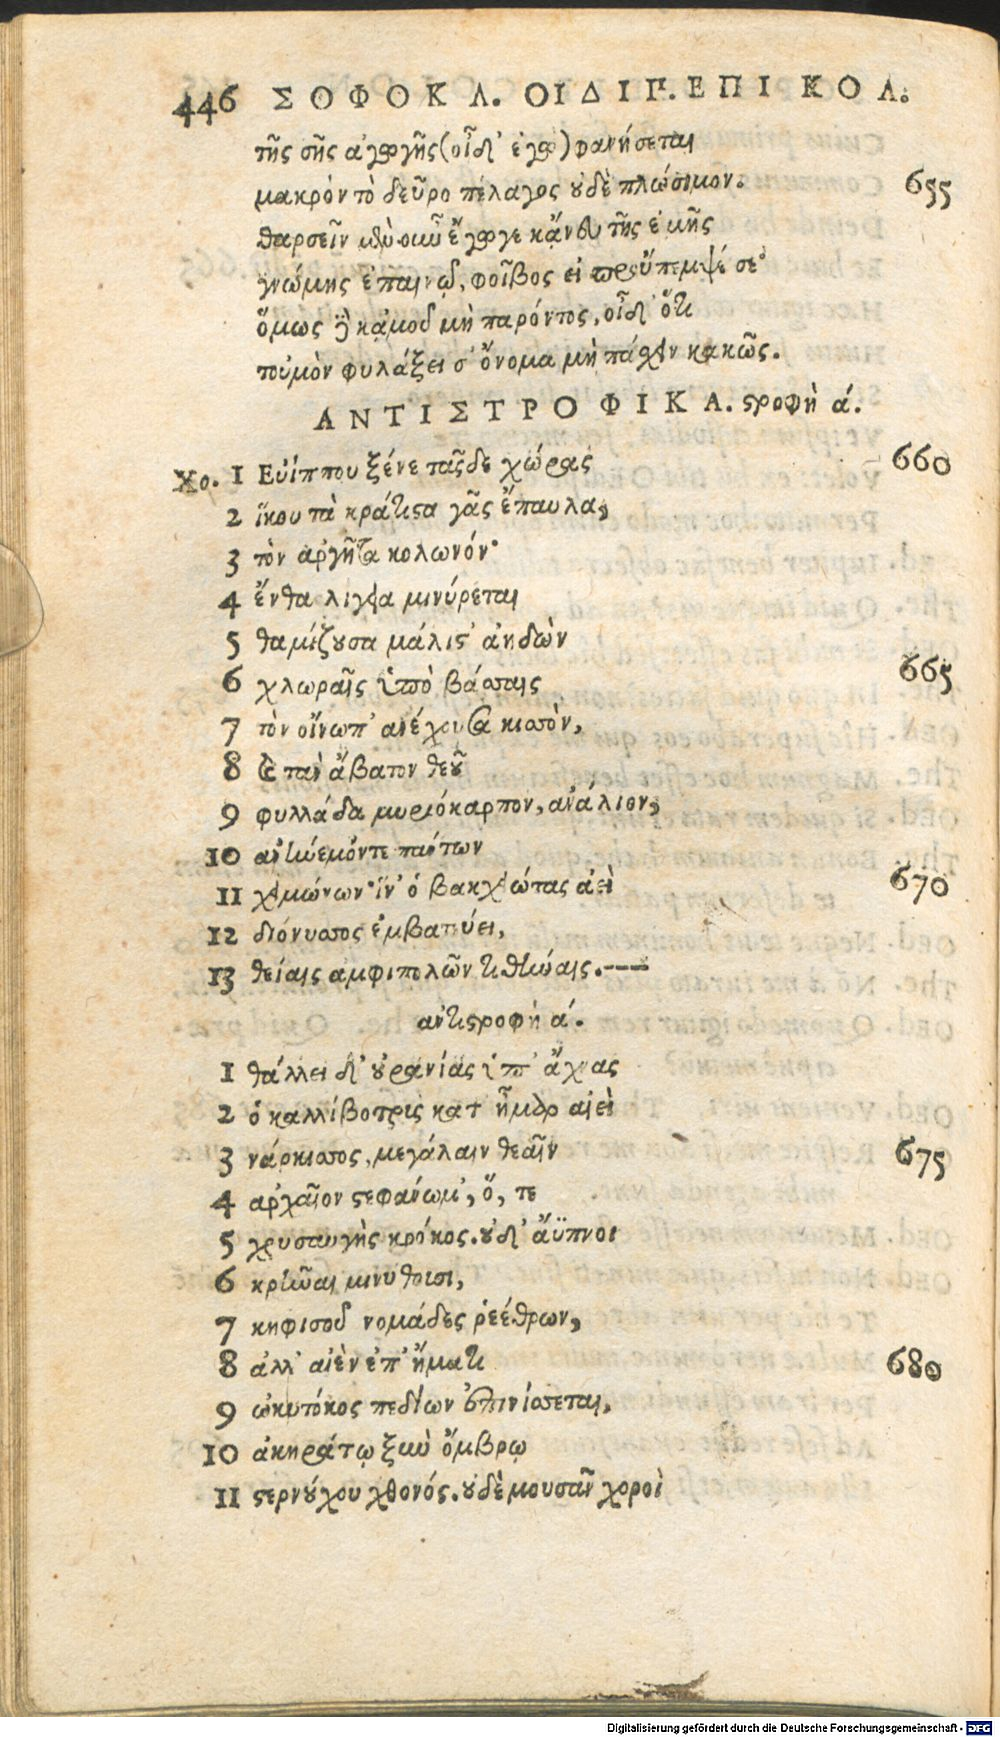 446 ΣΟΦΟΚΛ. ΟΙΔΙΠ. ΕΠΙ ΚΟΛ.
τῆς σῆς ἀγωγῆς (οἶδ' ἐγὼ) φανήσεται
μακρὸν τὸ δεῦρο πέλαγος οὐδὲ πλώσιμον. 655
θαρσεῖν μὲν οὖν ἔγωγε κἄνευ τῆς ἐμῆς
γνώμης ἐπαινῶ, φοῖβος εἰ προὔπεμψέ σε·
ὅμως δὲ κἀμοῦ μὴ παρόντος, οἶδ' ὅτι
τοὐμὸν φυλάξει σ' ὄνομα μὴ πάσχειν κακῶς.
ΑΝΤΙΣΤΡΟΦΙΚΑ. στροφὴ ά.
Χο. 1 Εὐίππου ξένε τᾶσδε χώρας 660
2 ἵκου τὰ κράτιστα γᾶς ἔπαυλα,
3 τὸν ἀργῆτα κολωνόν·
4 ἔνθα λιγεῖα μινύρεται
5 θαμίζουσα μάλιστ' ἀηδὼν
6 χλωραῖς ὑπὸ βάσσαις 665
7 τὸν οἴνωπ' ἀνέχουσα κισσὸν,
8 καὶ τὰν ἄβατον θεοῦ
9 φυλλάδα μυριόκαρπον, ἀνάλιον,
10 ἀνήνεμόν τε πάντων
11 χειμώνων· ἵν' ὁ βακχειώτας ἀεὶ 670
12 διόνυσσος ἐμβατεύει,
13 θείαις ἀμφιπολῶν τιθήναις.---
ἀντιστροφὴ ά.
1 θάλλει δ' οὐρανίας ὑπ' ἄχνας
2 ὁ καλλίβοτρυς κατ' ἦμαρ αἰεὶ
3 νάρκισσος, μεγάλαιν θεαῖν 675
4 ἀρχαῖον στεφάνωμ', ὅ, τε
5 χρυσαυγὴς κρόκος. οὐδ' ἄϋπνοι
6 κρῆναι μινύθουσι,
7 κηφισοῦ νομάδες ῥεέθρων,
8 ἀλλ' αἰὲν ἐπ' ἤματι 680
9 ὠκυτόκος πεδίων ἐπινίσσεται,
10 ἀκηράτῳ ξὺν ὄμβρῳ
11 στερνούχου χθονός. οὐδὲ μουσᾶν χοροὶ
Digitalisierung gefördert durch die Deutsche Forschungsgemeinschaft - DFG